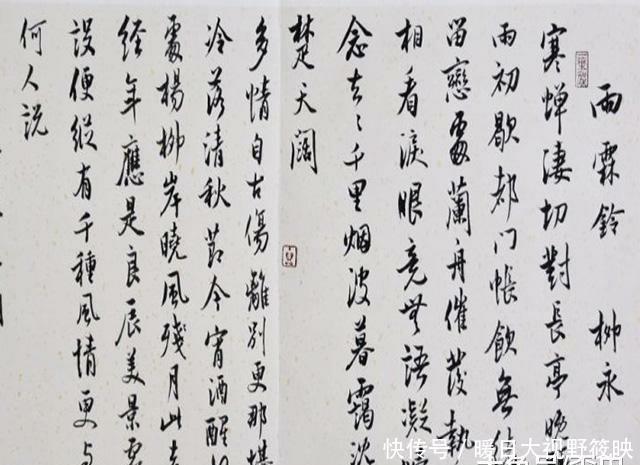 雨霖鈴 柳永
寒蝉淒切對長亭晚
雨初歇都門帳飲無緒
留戀處蘭舟催發執
相看淚眼竟無語凝噎
念去々千里烟波暮靄沈
楚天闊
多情自古傷離別更那堪
冷落清秋節今宵酒醒何
處楊柳岸曉風殘月此去
经年應是良辰美景虛
設便縱有千種風情更与
何人説
快传号/暖日大视野筱映